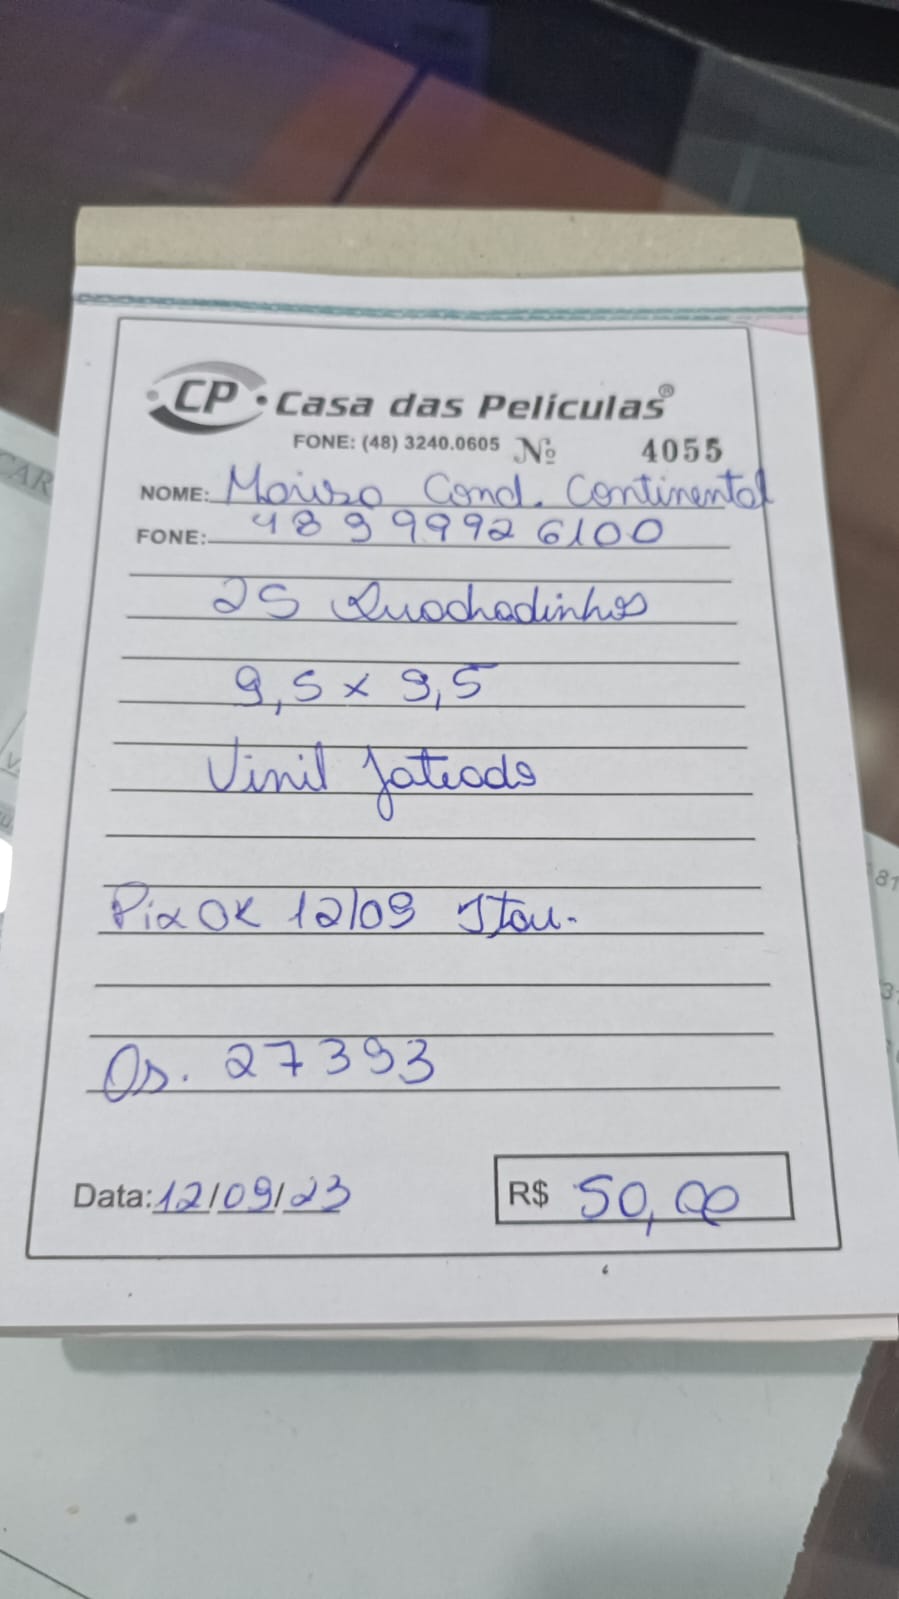 CP • Casa das Películas®
FONE: (48) 3240.0605 Nº 4055
NOME: Cond. Continental
FONE: 48 9 9992 6100
25 Quadradinhos
9,5 x 9,5
Vinil Jateado
Pix OK 12/09 Itau.
Os. 27393
Data: 12/09/23 R$ 50,00
CAR
181